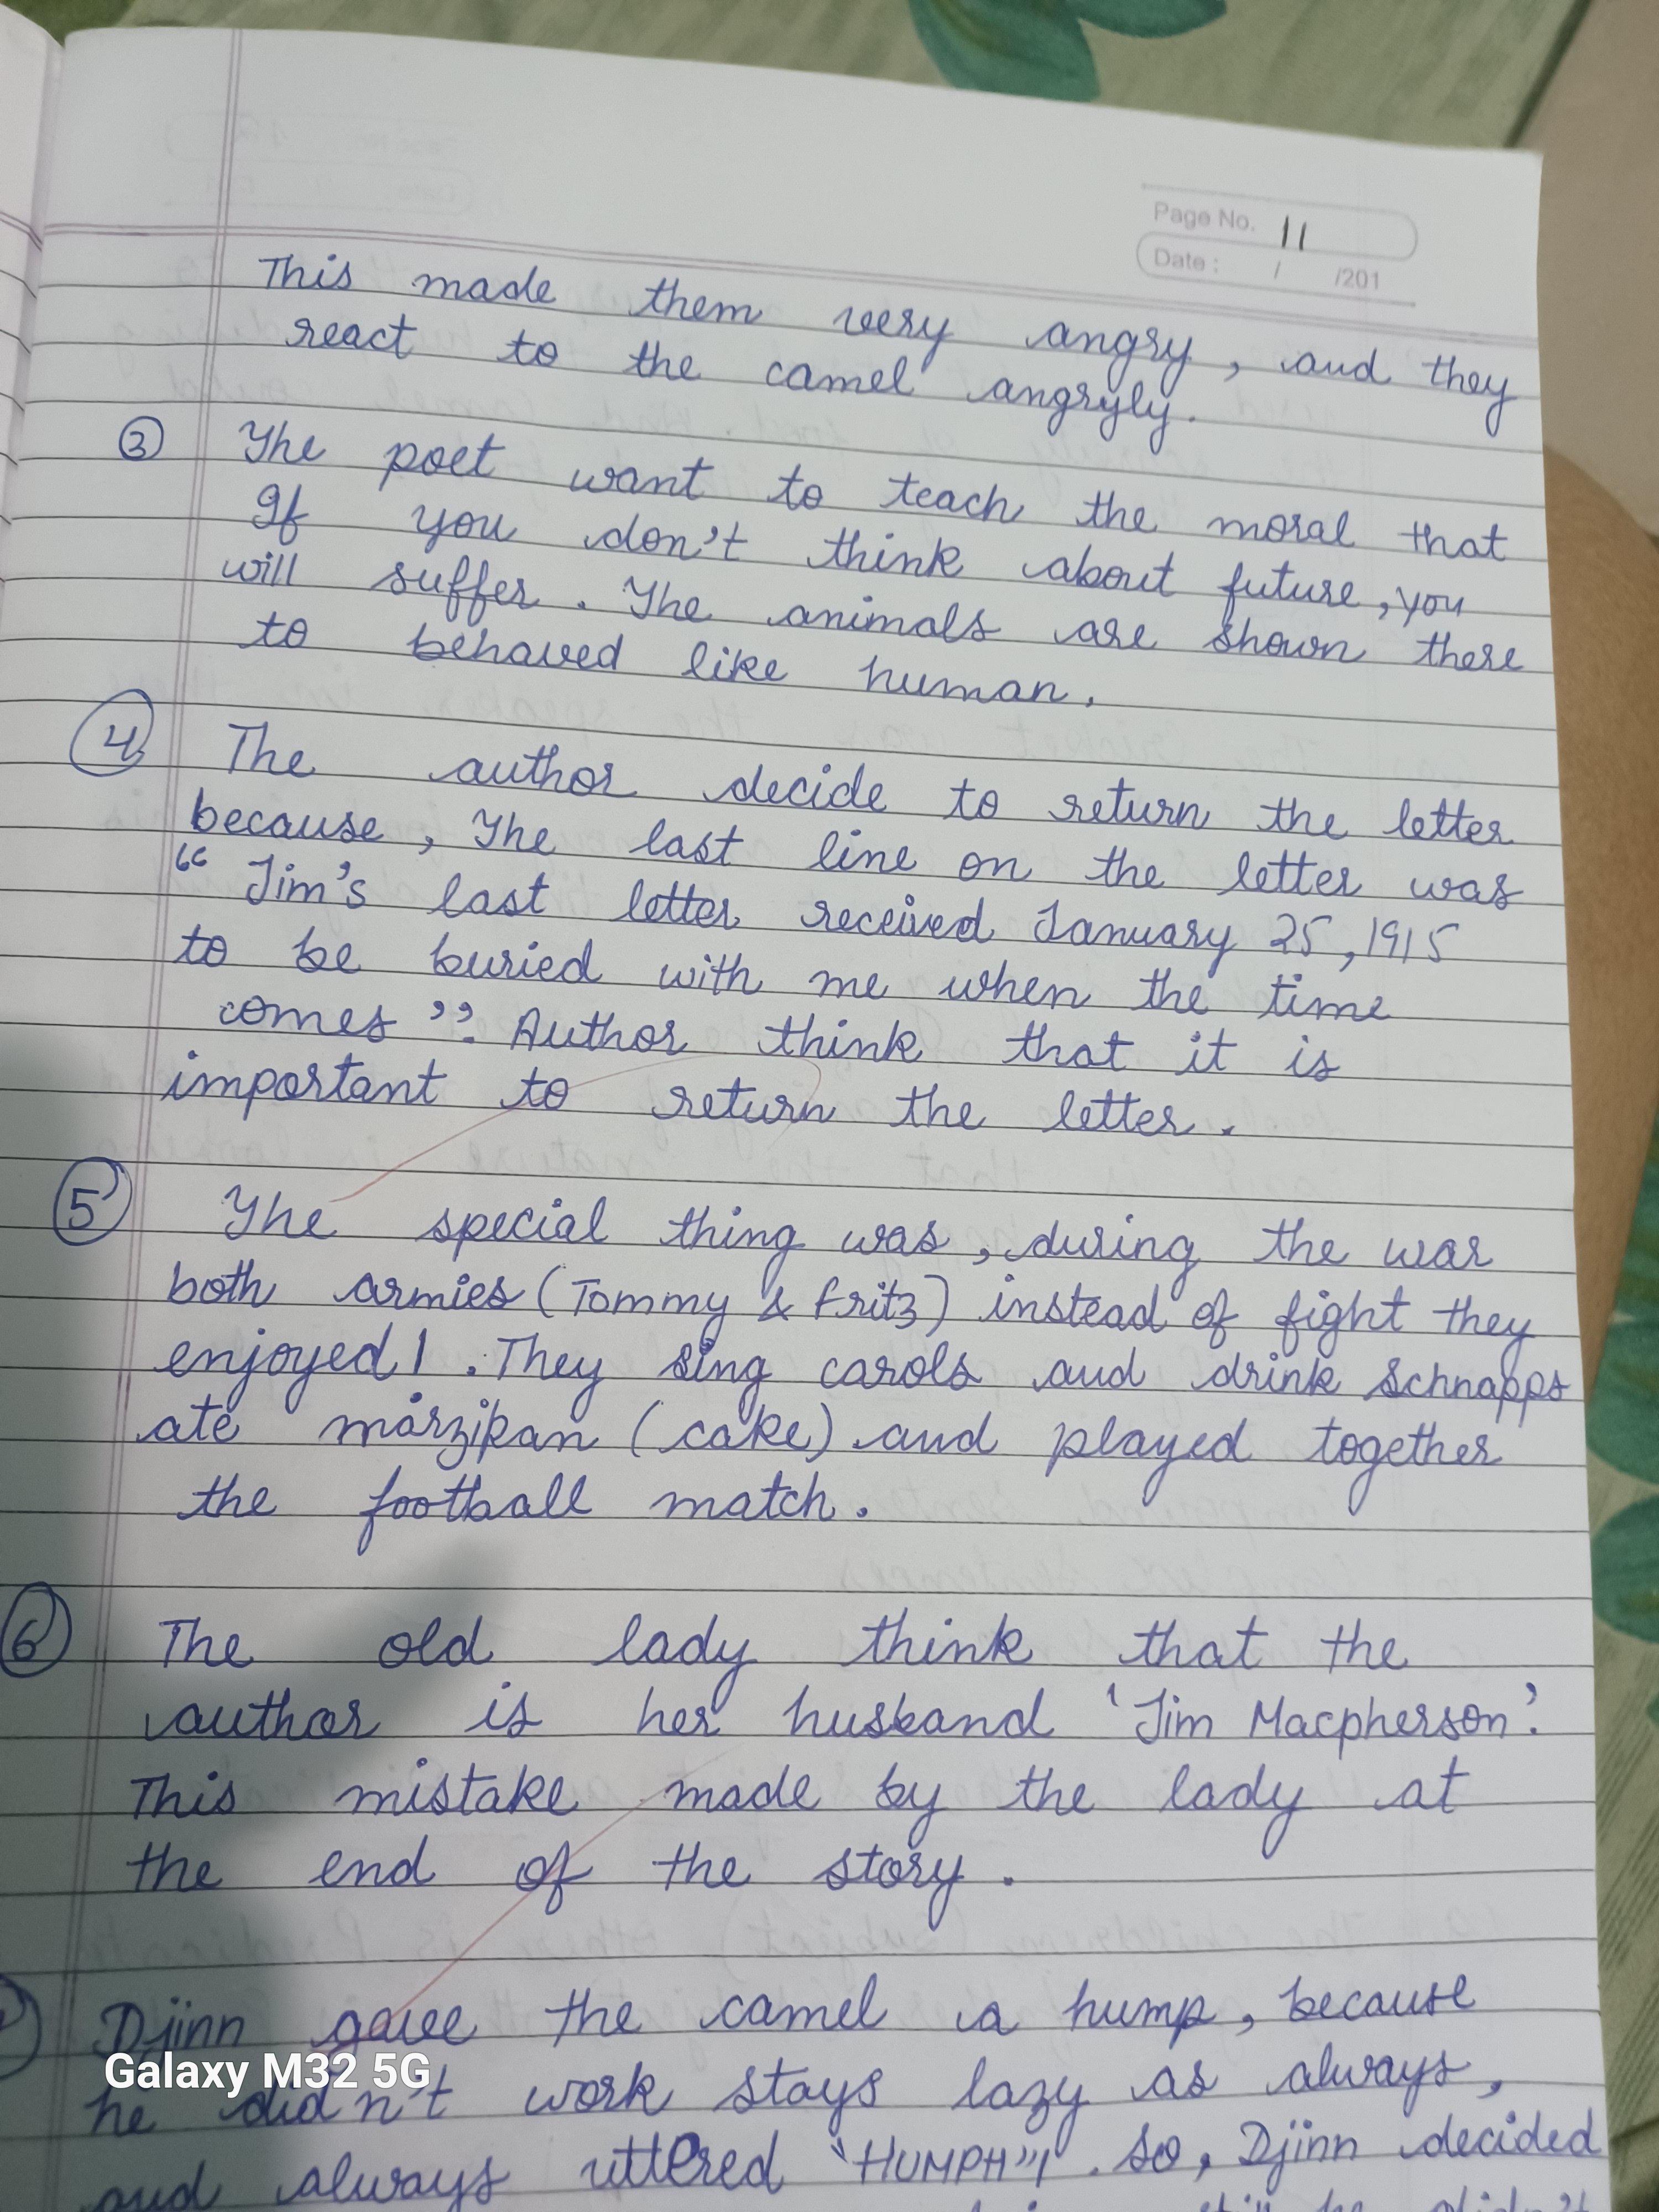 Page No. 11
Date : / /201
This made them very angry, and they
react to the camel angryly.
③ The poet want to teach the moral that
If you don't think about future, you
will suffer. The animals are shown there
to behaved like human.
④ The author decide to return the letter
because, The last line on the letter was
“Jim's last letter received January 25, 1915
to be buried with me when the time
comes”. Author think that it is
important to return the letter.
⑤ The special thing was, during the war
both armies (Tommy & fritz) instead of fight they
enjoyed!. They sing carols and drink schnapps
ate marzipan (cake) and played together
the football match.
⑥ The old lady think that the
author is her husband 'Jim Macpherson'.
This mistake made by the lady at
the end of the story.
Djinn gave the camel a hump, because
he didn't work stays lazy as always,
and always uttered "HUMPH"!. So, Djinn decided
Galaxy M32 5G